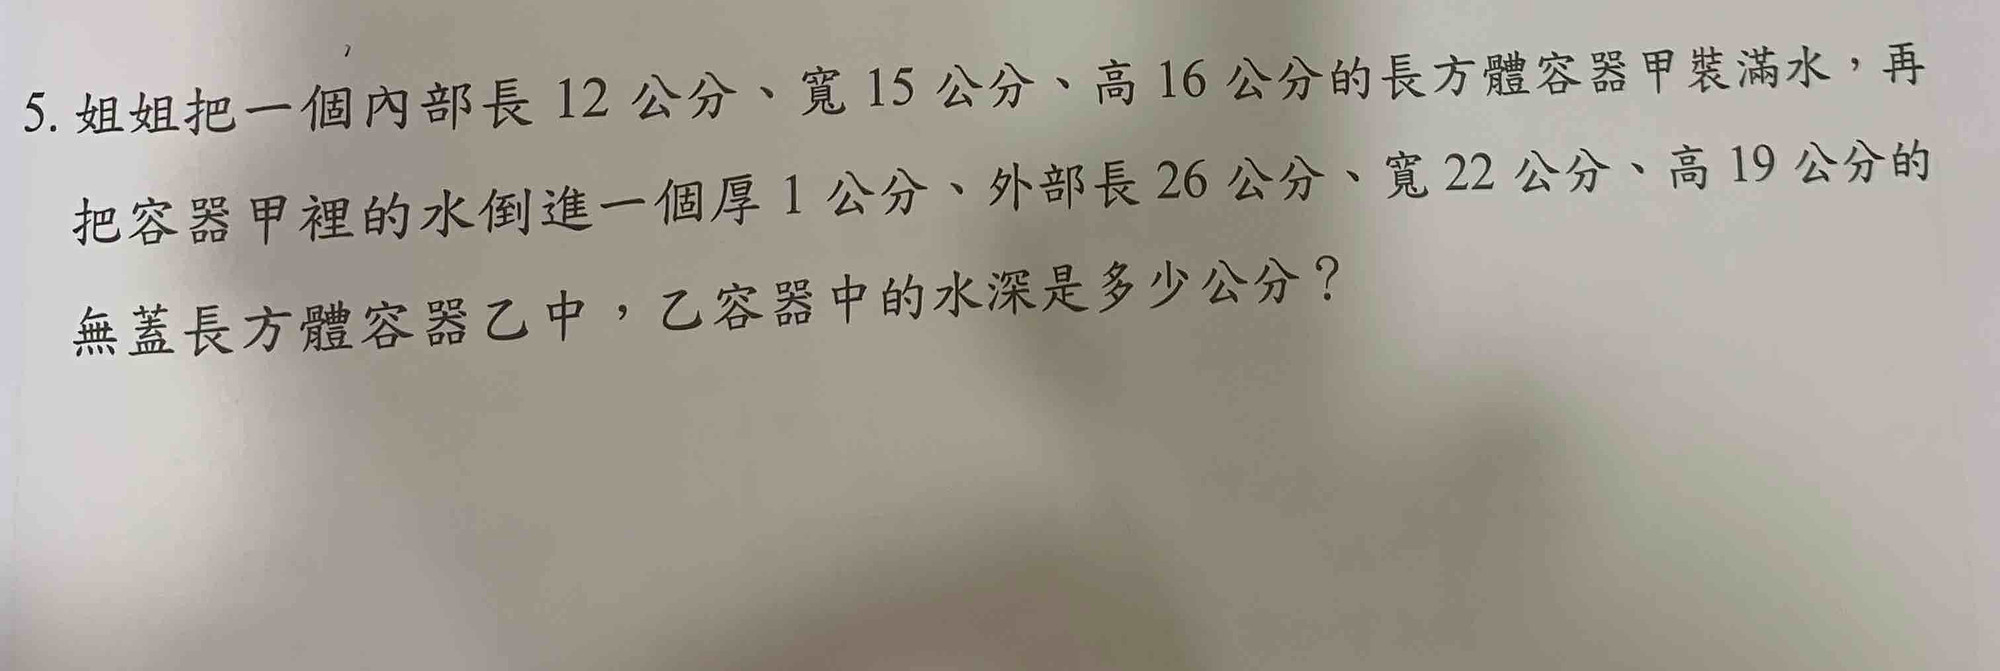 5. 姐姐把一個內部長 12 公分、寬 15 公分、高 16 公分的長方體容器甲裝滿水，再
把容器甲裡的水倒進一個厚 1 公分、外部長 26 公分、寬 22 公分、高 19 公分的
無蓋長方體容器乙中，乙容器中的水深是多少公分？